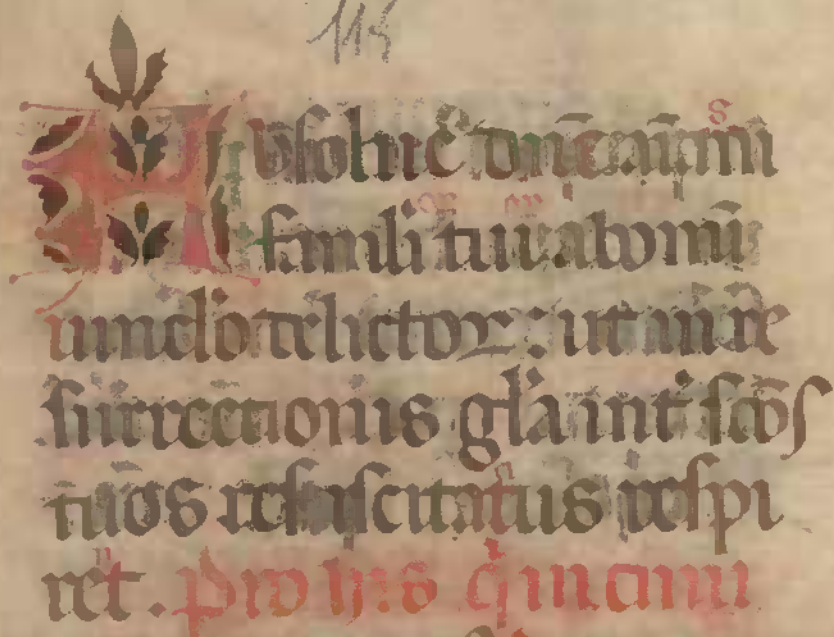 115
Absolue dne aīam
famuli tui ab omni
uinclo delictoꝝ: ut in re
surrectionis gl̄a int̄ sc̄os
tuos resuscitatus respi
ret. Pro hiis q̄ in cimi